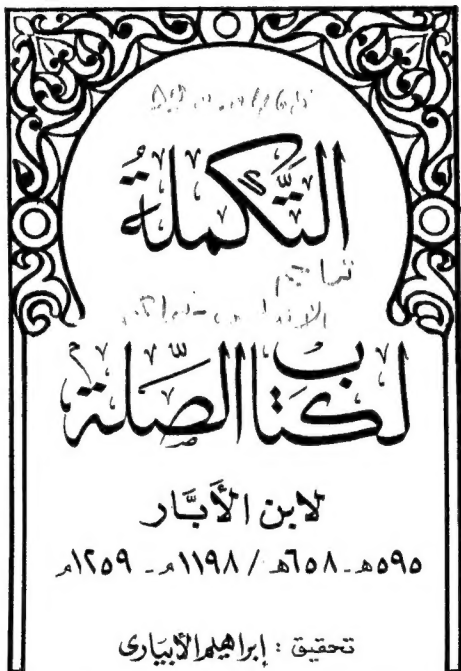 التَّكملةُ
تراجم
لكتاب الصِّلة
لابن الأبَّار
٥٩٥هـ - ٦٥٨هـ / ١١٩٨م - ١٢٥٩م
تحقيق : إبراهيم الأبياري